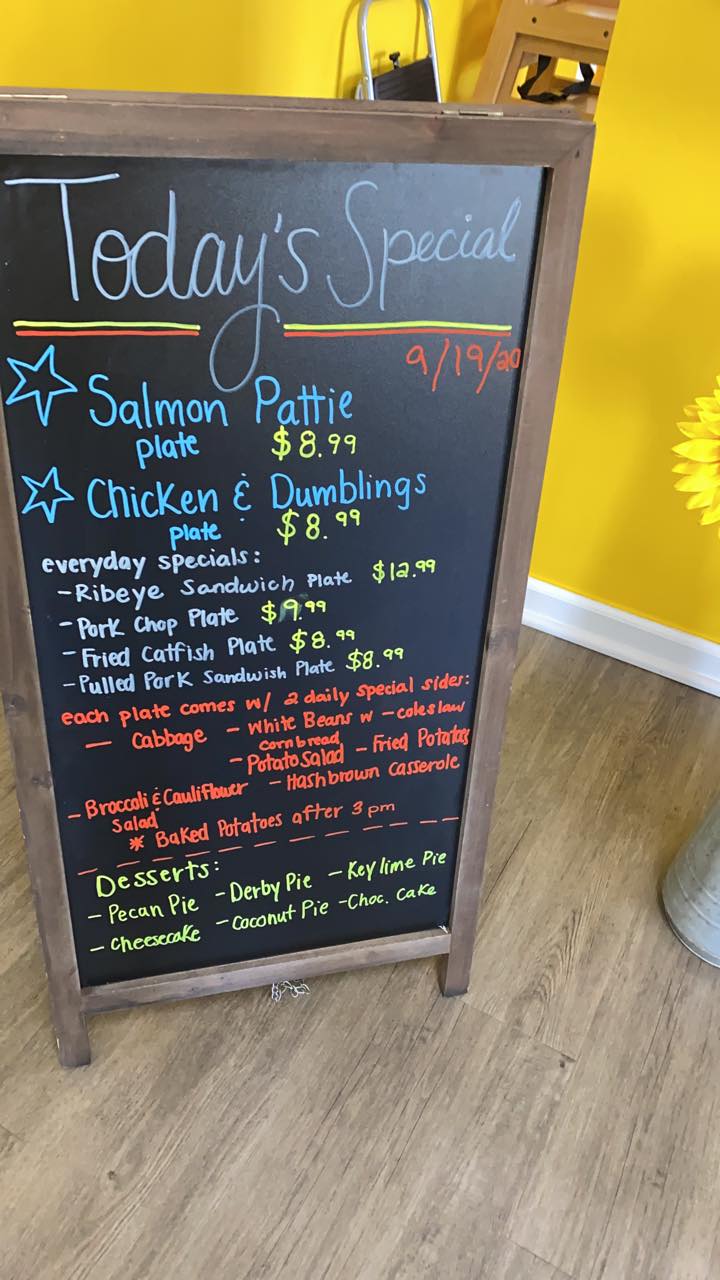 Today's Special
9/19/20
Salmon Pattie
plate $8.99
Chicken & Dumblings
plate $8.99
everyday specials:
- Ribeye Sandwich Plate $12.99
- Pork Chop Plate $9.99
- Fried Catfish Plate $8.99
- Pulled Pork Sandwish Plate $8.99
each plate comes w/ 2 daily special sides:
- Cabbage - White Beans w - coleslaw
cornbread
- Potato Salad - Fried Potatoes
- Broccoli & Cauliflower - Hashbrown Casserole
Salad
* Baked Potatoes after 3 pm
Desserts:
- Pecan Pie - Derby Pie - Key lime Pie
- Cheesecake - Coconut Pie - Choc. Cake